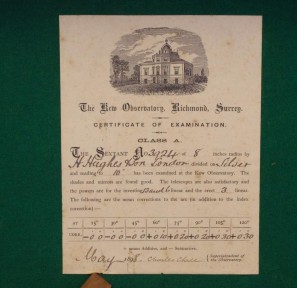 The Kew Observatory, Richmond, Surrey.
CERTIFICATE OF EXAMINATION.
CLASS A.
THE SEXTANT No 3924 of 8 inches radius by
H. Hughes & Son London divided on Silver
and reading to 10" has been examined at the Kew Observatory. The
shades and mirrors are found good. The telescopes are also satisfactory and
the powers are for the inverting and 6 times and the erect 3 times.
The following are the mean corrections to the arc (in addition to the Index
correction):—
AT 15° 30° 45° 60° 75° 90° 105° 120°
+ means Additive, and − Subtractive.
May Charles Chree
Superintendent of
the Observatory.